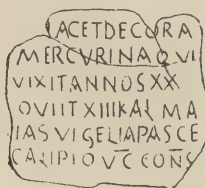 IACET DECORA
MERCVRINA QVI
VIXIT ANNOS XX
OVIIT XIII KAL MA
IAS VIGELIA PASCE
CALIPIO V̅C̅ CONS